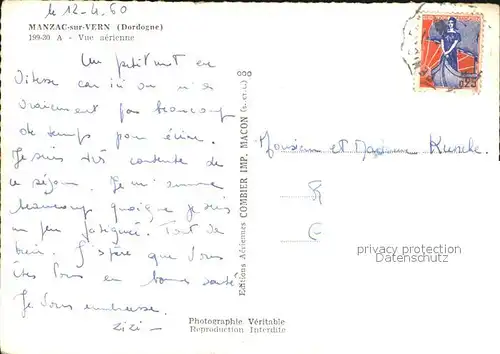 le 12-4-60
MANZAC-sur-VERN (Dordogne)
199-30 A - Vue aérienne
Un petit mot en
vitesse car ici on n'a
vraiment pas beaucoup
de temps pour écrire.
Je suis très contente de
ce séjour. Je m'amuse
beaucoup quoique je suis
un peu fatiguée. Tout va
bien. J'espère que Vous
êtes Tous en bonne santé
Je Vous embrasse.
Zizi -
Editions Aériennes COMBIER IMP. MACON (S.-et-L.)
Monsieur et Madame
0,25
privacy protection
Datenschutz
Photographie Véritable
Reproduction Interdite